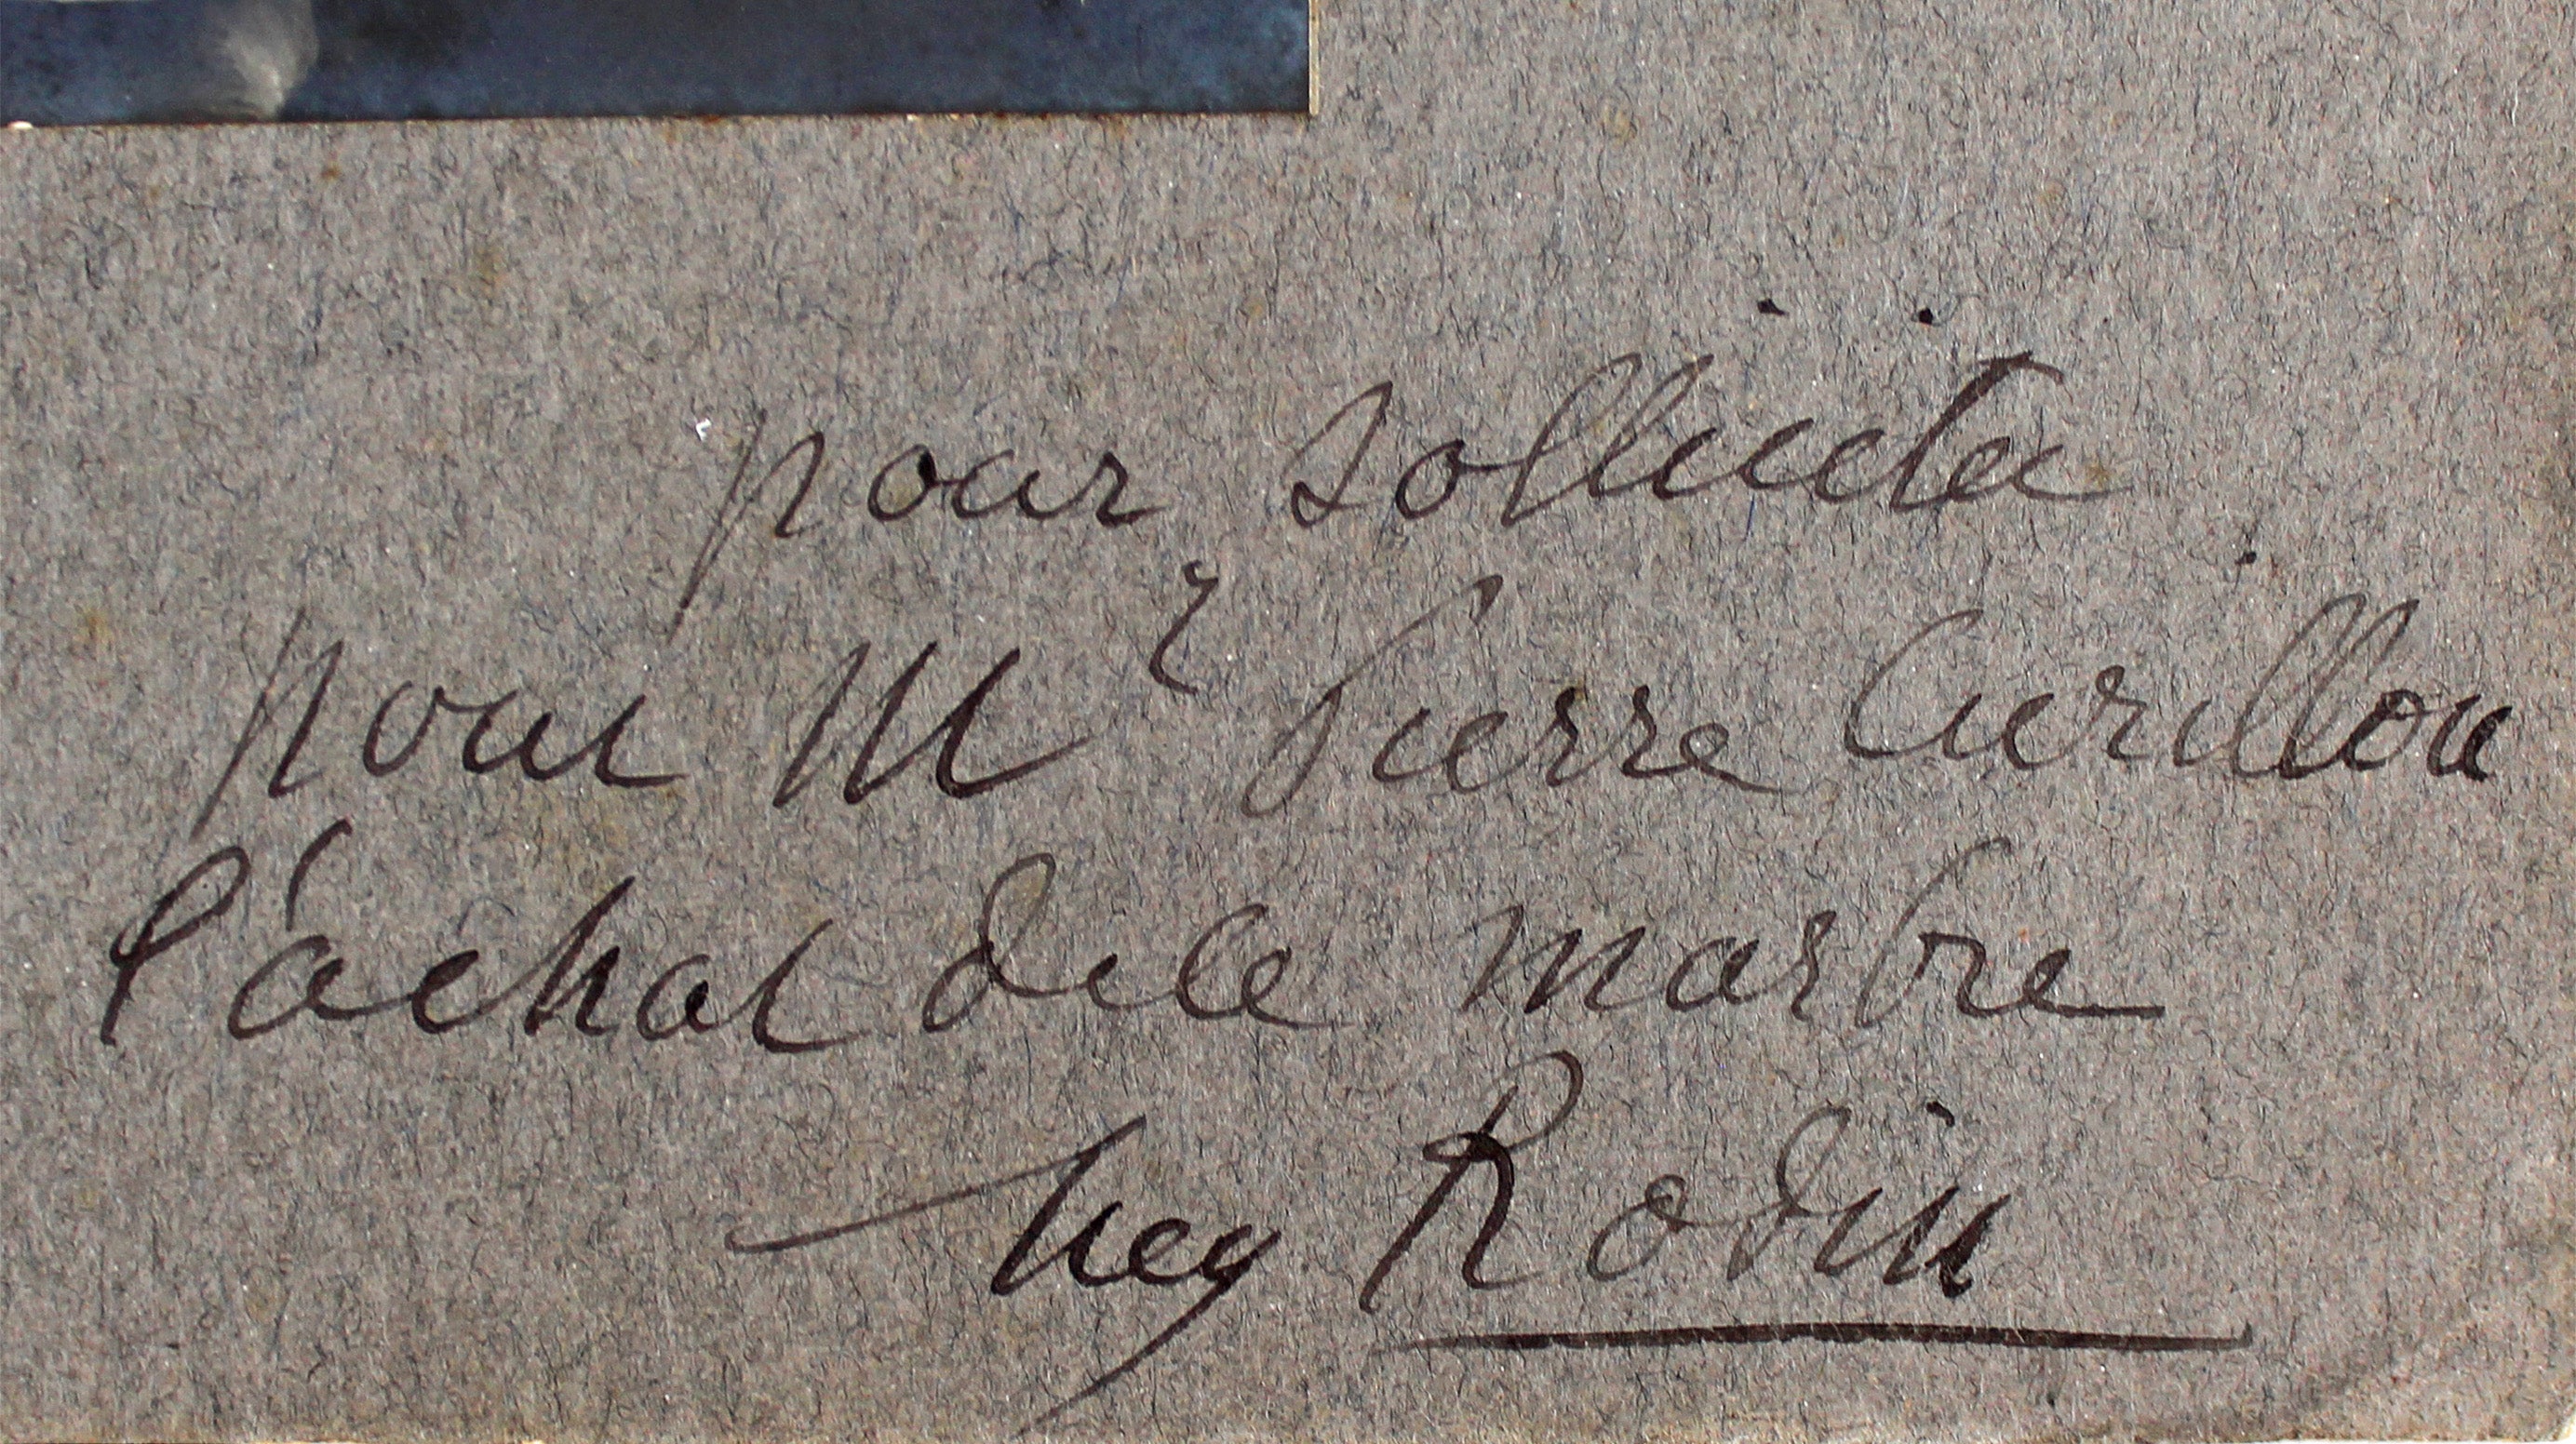 pour solliciter
pour Mr Pierre Curillon
l'áchat de ce marbre
Aug Rodin